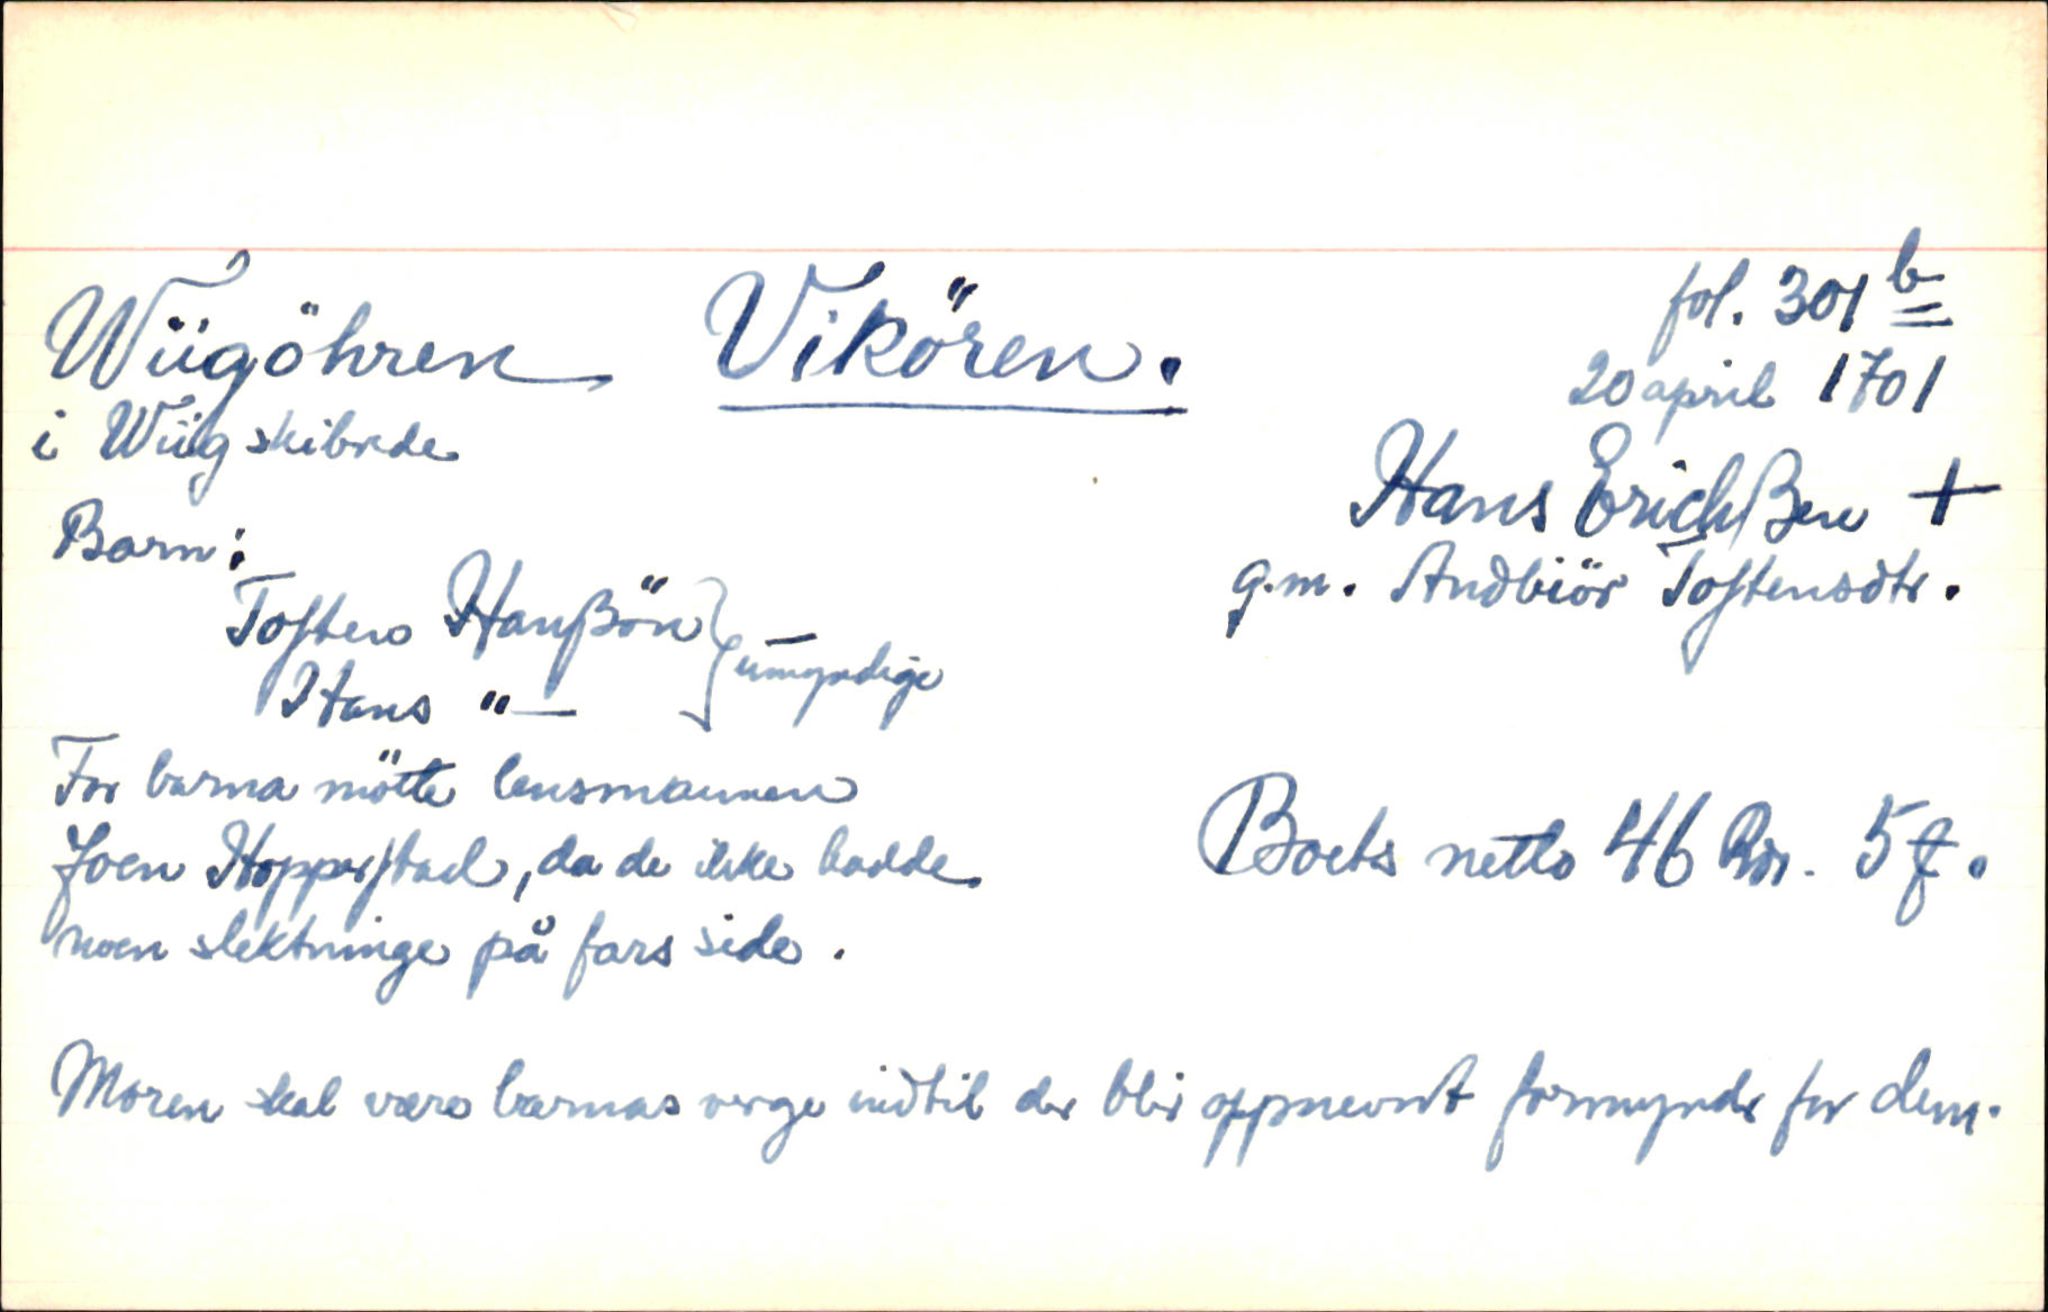 Wügöhren Vikören. fol. 301 b
i Wüg skibrede 20 april 1701
Hans Erichßen +
g.m. Andbiör Tostensdtr.
Barn:
Tosten Hanßön
Hans "— } umyndige
For barna mötte lensmannen
Joen Hopperstad, da de ikke hadde
noen slektninge på fars side.
Boets netto 46 Rdr. 5 ƒ.
Moren skal være barnas verge indtil der blir oppnevnt formynder for dem.